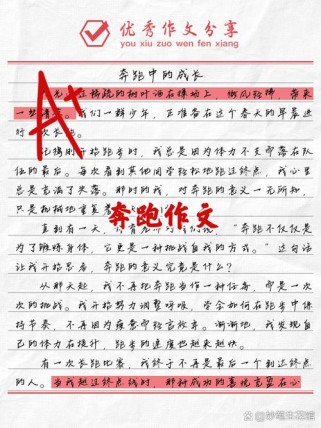 优秀作文分享
you xiu zuo wen fen xiang
奔跑中的成长
稀疏的树叶洒在操场上，微风轻拂，带来
一丝 我们一群少年，正准备在这个春天的早晨进
行一次长跑。
记得刚开始跑步时，我总是因为体力不支而落在队
伍的最后。每次看到其他同学轻松地跑过终点，我心里
总是充满了失落。那时的我，对奔跑的意义一无所知，
只是机械地重复着
直到有一天， “奔跑不仅仅是
为了锻炼身体，它更是一种挑战自我的方式。”这句话
让我开始思考，奔跑的意义究竟是什么？
从那天起，我不再把跑步当作一种任务，而是一次
次的挑战。我开始努力调整呼吸，学会如何在跑步中保
持节奏，不再因为疲惫而轻言放弃。渐渐地，我发现自
己的体力在提升，跑步的速度也越来越快。
有一次长跑比赛，我终于不再是最后一个到达终点
的人。当我越过终点线时，那种成功的喜悦充盈在心
A+
奔跑作文